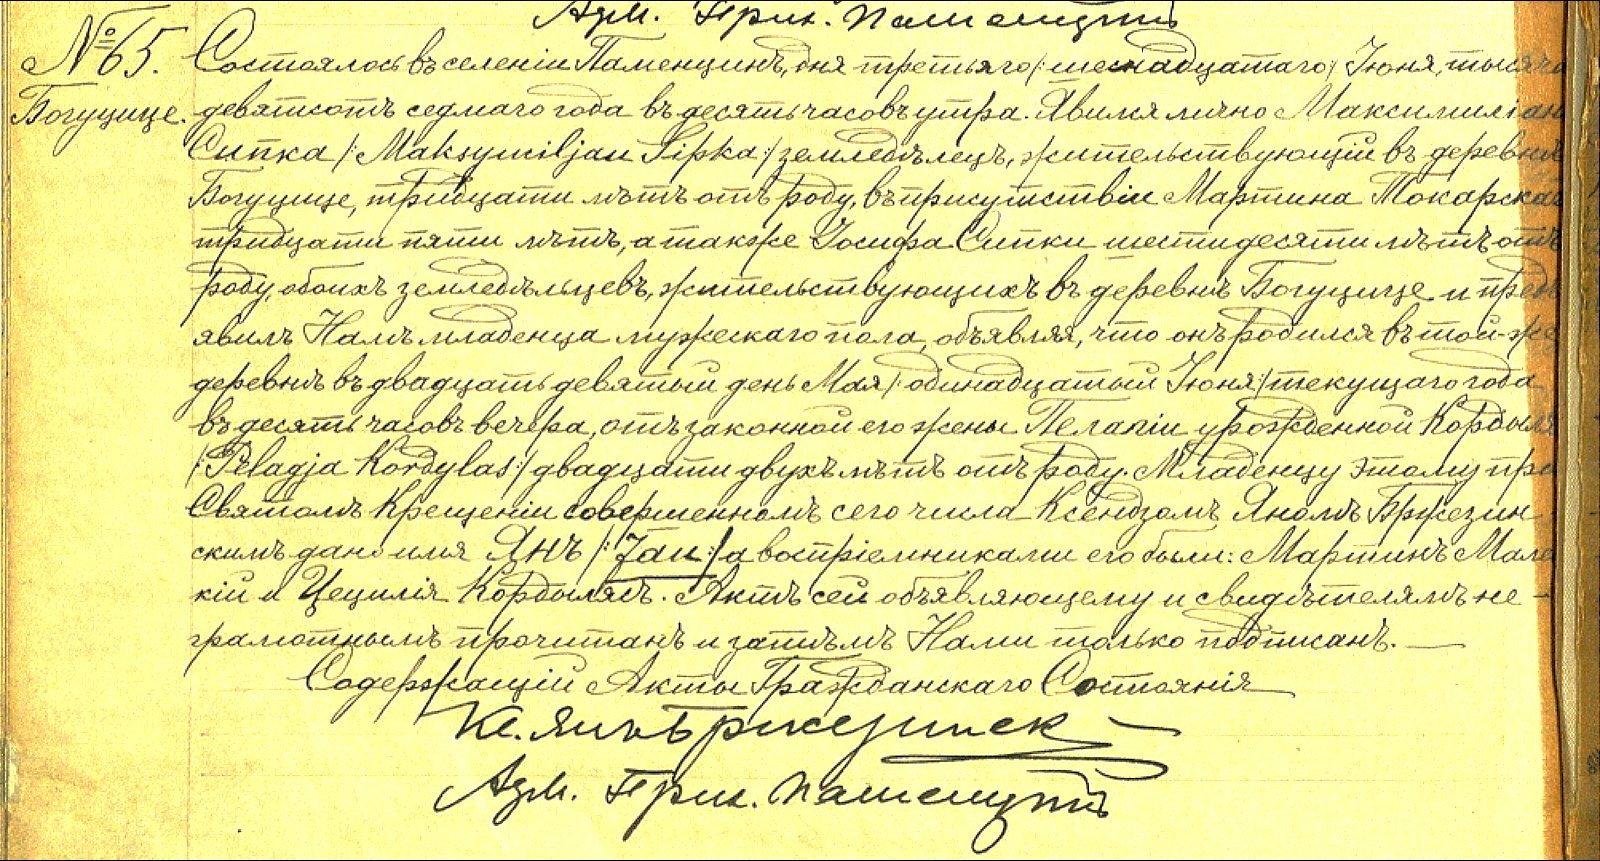 Адм. Прих. Паменцинъ
№65.
Богуцице.
Состоялось въ селеніи Паменцинъ, дня третьяго /: шеснадцатаго :/ Іюня, тысяча
девятьсотъ седмаго года въ десять часовъ утра. Явился лично Максимиліан
Сипка /: Maksymiljan Sipka :/ земледѣлецъ, жительствующій въ деревнѣ
Богуцице, тридцати лѣтъ отъ роду, въ присутствіи Мартина Токарска
тридцати пяти лѣтъ, а также Іосифа Сипки шестидесяти лѣтъ отъ
роду, обоихъ земледѣльцевъ, жительствующихъ въ деревнѣ Богуцице и предъ
явилъ Намъ младенца мужескаго пола, объявляя, что онъ родился въ той-же
деревнѣ въ двадцать девятый день Мая /: одинадцатый Іюня :/ текущаго года
въ десять часовъ вечера, отъ законной его жены Пелагіи урожденной Кордыля
/: Pelagja Kordylas :/ двадцати двухъ лѣтъ отъ роду. Младенцу этому при
Святомъ Крещеніи совершенномъ сего числа Ксендзомъ Яномъ Бржезин
скимъ дано имя Янъ /: Jan :/ а воспріемниками его были: Мартинъ Мале
кій и Цецилія Кордылясъ. Актъ сей объявляющему и свидѣтелямъ не-
грамотнымъ прочитанъ и затѣмъ Нами только подписанъ. —
Содержащій Акты Гражданскаго Состоянія
Кс. Янъ Бржезинск
Адм. Прих. Паменцинъ